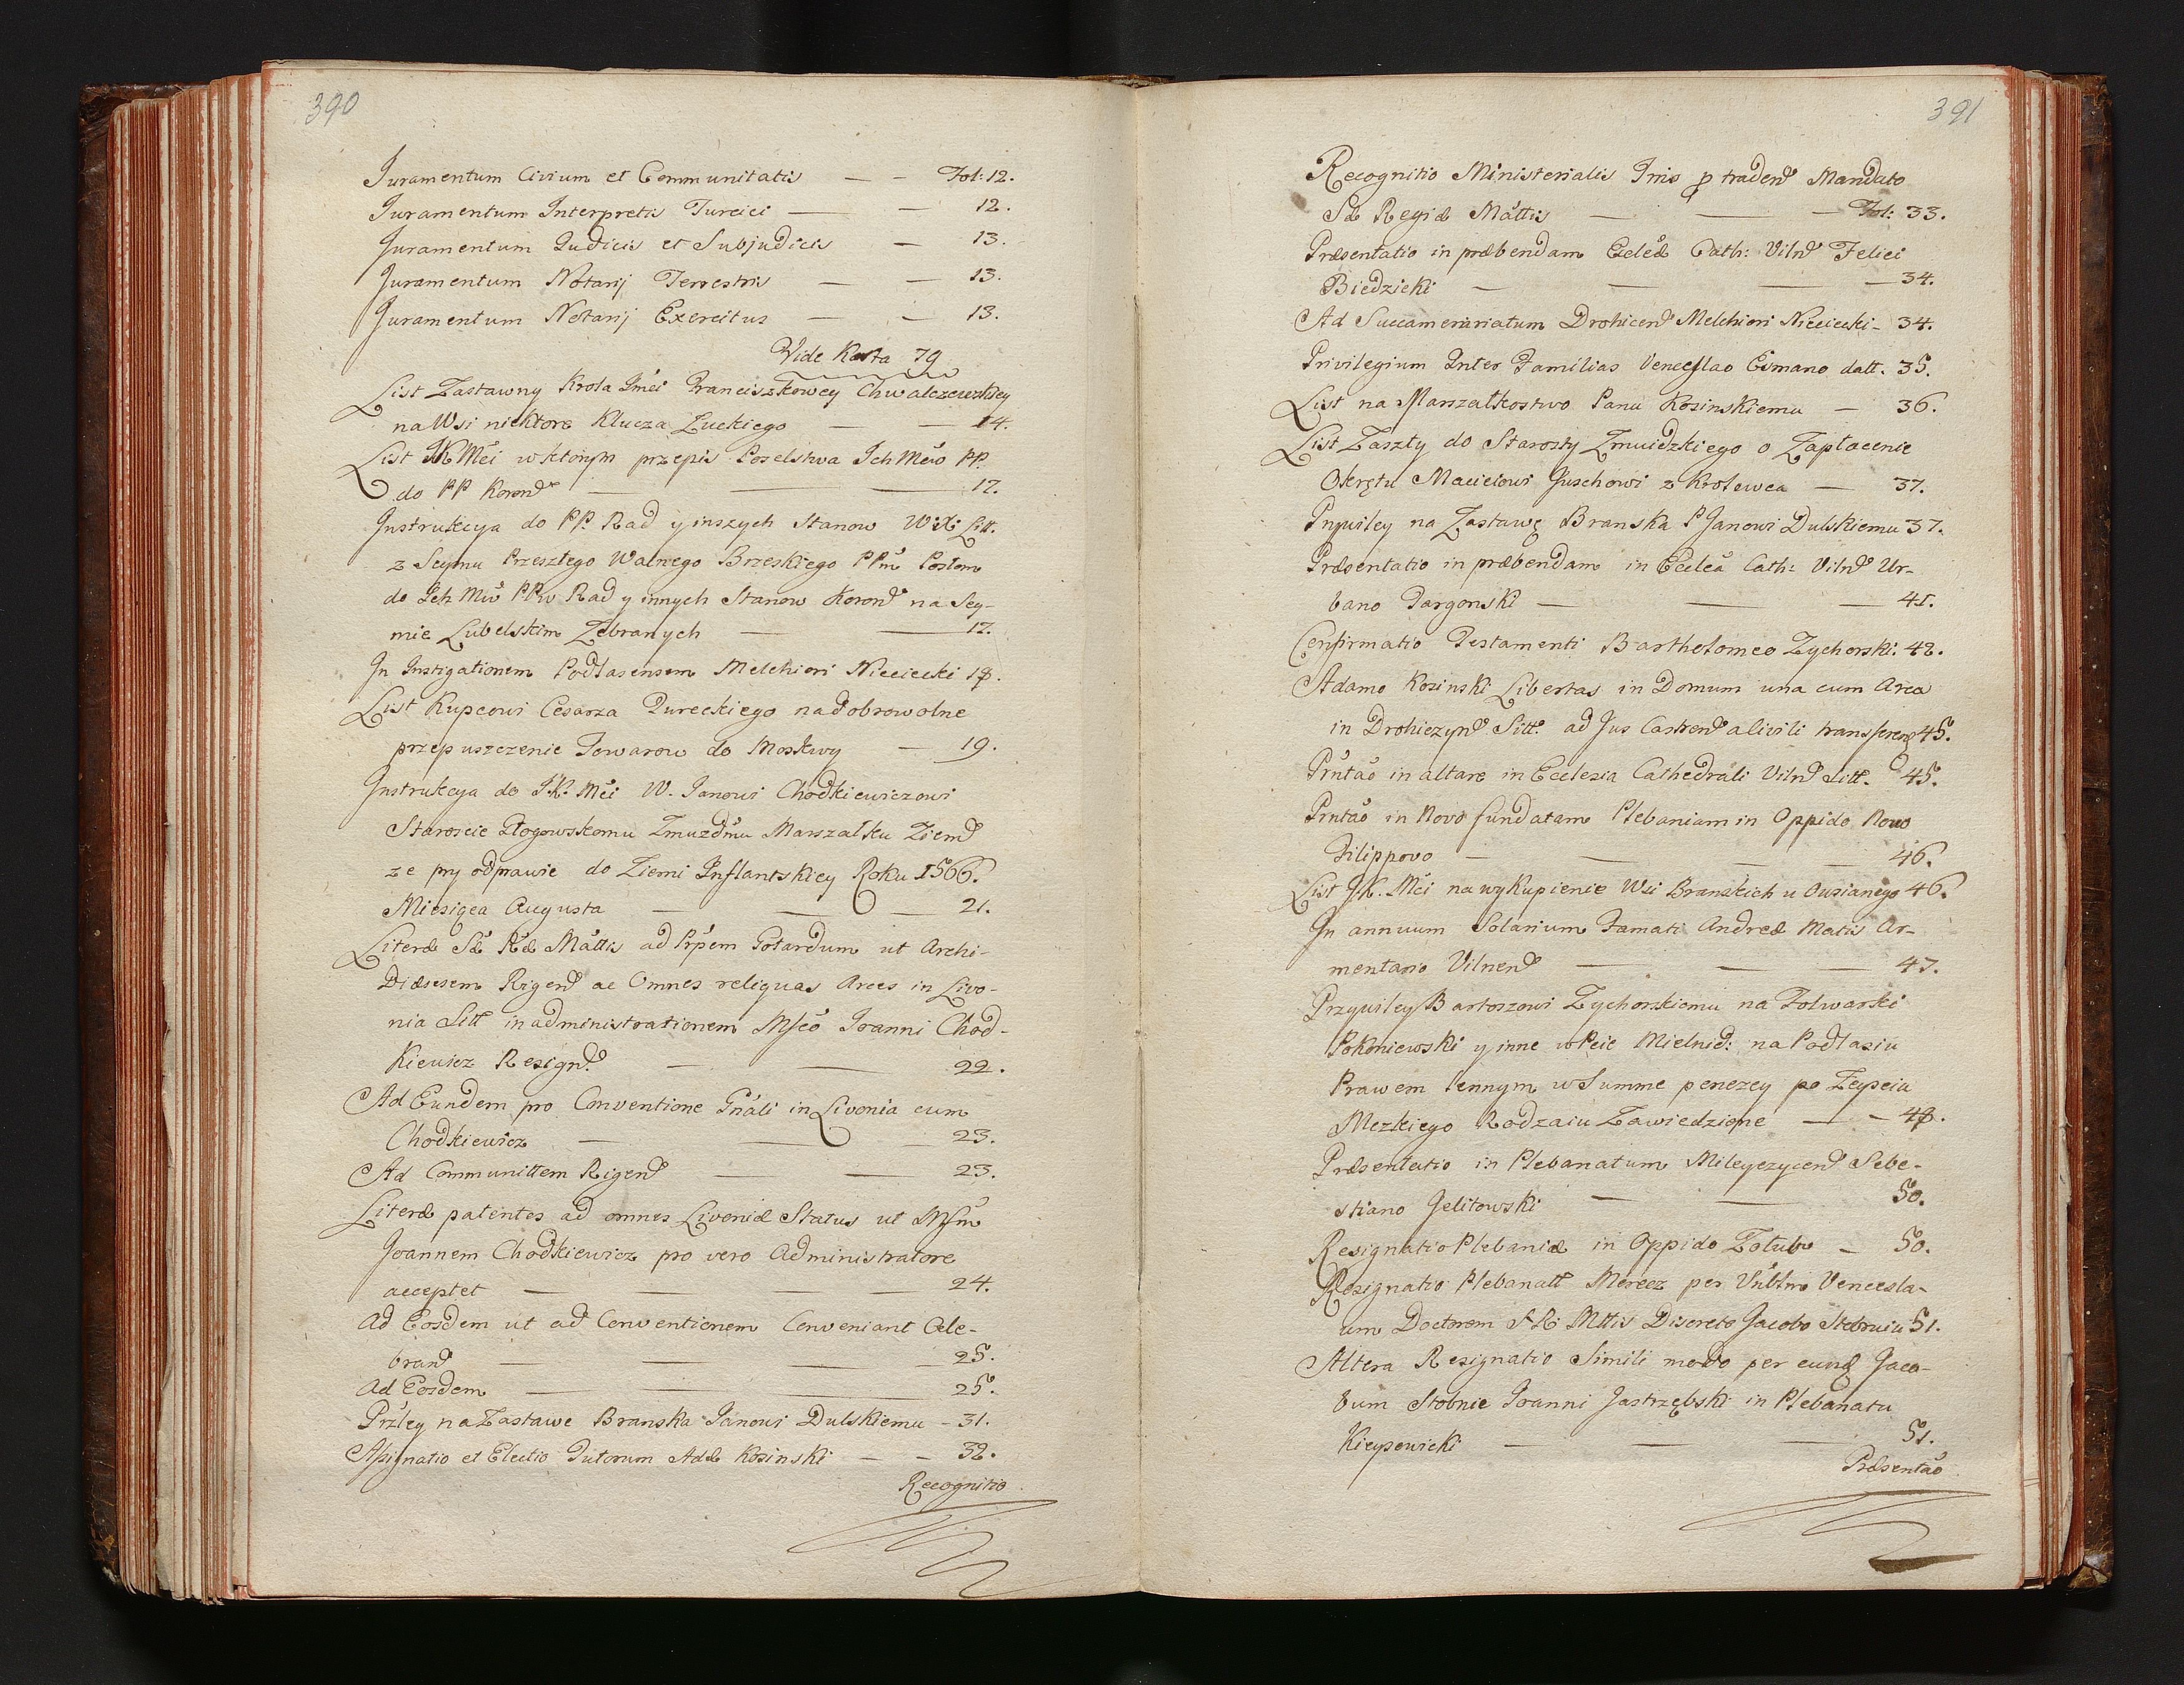 390
Juramentum Civium et Communitatis — — Fol: 12.
Juramentum Interpretis Turcici — — 12.
Juramentum Judicis et Subjudicis — 13.
Juramentum Notarij Terrestris — — 13.
Juramentum Notarij Exercitus — — 13.
Vide Karta 79
List Zastawny Krola Jmci Franciszkowey Chwalczewskiey
na Wsi niektore Klucza Łuckiego — — 14.
List JKMći w ktorym przepis Poselstwa Ich Mćiō PP.
do PP Korond — — — 17.
Instrukcya do PP. Rad y inszych Stanow W:X: Litt.
z Seymu Przeszłego Walnego Brzeskiego PPm Posłom
do Ich Mćiō PPw Rad y innych Stanow Korond na Sey-
mie Lubelskim Zebranych — — 17.
In Instigationem Podlasensem Melchiori Niecieski 18.
List Kupcowi Cesarza Tureckiego na dobrowolne
przepuszczenie Towarow do Moskwy — 19.
Instrukcya do J.K. Mći W. Janowi Chodkiewiczowi
Staroscie Płogowskomu Zmuzdmu Marszałku Ziemd
ze przy odprawie do Ziemi Inflantskiey Roku 1566.
Miesiąca Augusta — — — 21.
Literæ Sæ Ræ Mattis ad Prpem Gotardum ut Archi-
Diæsesem Rigend ac Omnes reliquas Arces in Livo-
nia Sitt in administrationem Mfco Joanni Chod-
kiewicz Resignd — — 22.
Ad Eundem pro Conventione Gnali in Livonia cum
Chodkiewicz — — — 23.
Ad Communittem Rigend — — 23.
Literæ patentes ad omnes Livoniæ Status ut Mfm
Joannem Chodkiewicz pro vero Administratore
acceptet — — — — 24.
Ad Eosdem ut ad Conventionem Conveniant Cele-
brand — — — — 25.
Ad Eosdem — — — 25.
Przley na Zastawe Branska Janowi Dulskiemu — 31.
Assignatio et Electio Tutorum Adæ Kosinski — — 32.
Recognitio
391
Recognitio Ministerialis Jmis p traden Mandato
Sæ Regiæ Mattis — — — Fol: 33.
Præsentatio in præbendam Eccleæ Cath: Vilnd Felici
Biedzicki — — — — 34.
Ad Succamerariatum Drohicend Melchiori Nieciecki — 34.
Privilegium Inter Familias Venceslao Eismano datt. 35.
List na Marszałkostwo Panu Kosinskiemu — 36.
List Zaszły do Starosty Zmuidzkiego o Zapłacenie
Okrętu Maciciowi Juschowi z Krolewca — 37.
Prziwiley na Zastawę Branska P Janowi Dulskiemu 37.
Præsentatio in præbendam in Ecclea Cath: Vilnd Ur-
bano Dargonski — — — 41.
Confirmatio Testamenti Bartholomeo Zychorski. 42.
Adamo Kosinski Libertas in Domum una cum Area
in Drohiczynd Sitt. ad Jus Castrend a Civili transferend 45.
Prntaō in altare in Ecclesia Cathedrali Vilnd Sitt. 45.
Prntaō in Novo fundatam Plebaniam in Oppido Novo
Filippovo — — — — 46.
List J.K. Mći na wykupienie Wsi Branskich u Ousianego 46.
In annuum Solarium Famati Andreæ Matis Ar-
mentario Vilnend — — — 47.
Przywiley Bartoszowi Zychorskiemu na Folwarki
Pokoniewski y inne w Pcie Mielnid: na Podlasiu
Prawem lennym w Summe penezey po Zeyscia
Mezkiego Rodzaiu Zawiedzione — — 48.
Præsentatio in Plebanatum Mileyczycend Seba-
stiano Jelitowski — — 50.
Resignatio Plebaniæ in Oppido Zołubo — 50.
Resignatio Plebanatt Merecz per Vnblm Vencesla-
um Doctorem S R. Mttis Discreto Jacobo Stobruiu 51.
Altera Resignatio Simili modo per eund Jaco-
bum Stobnie Joanni Jastrzębski in Plebanatu
Kieypowicki — — — 51.
Præsentaō